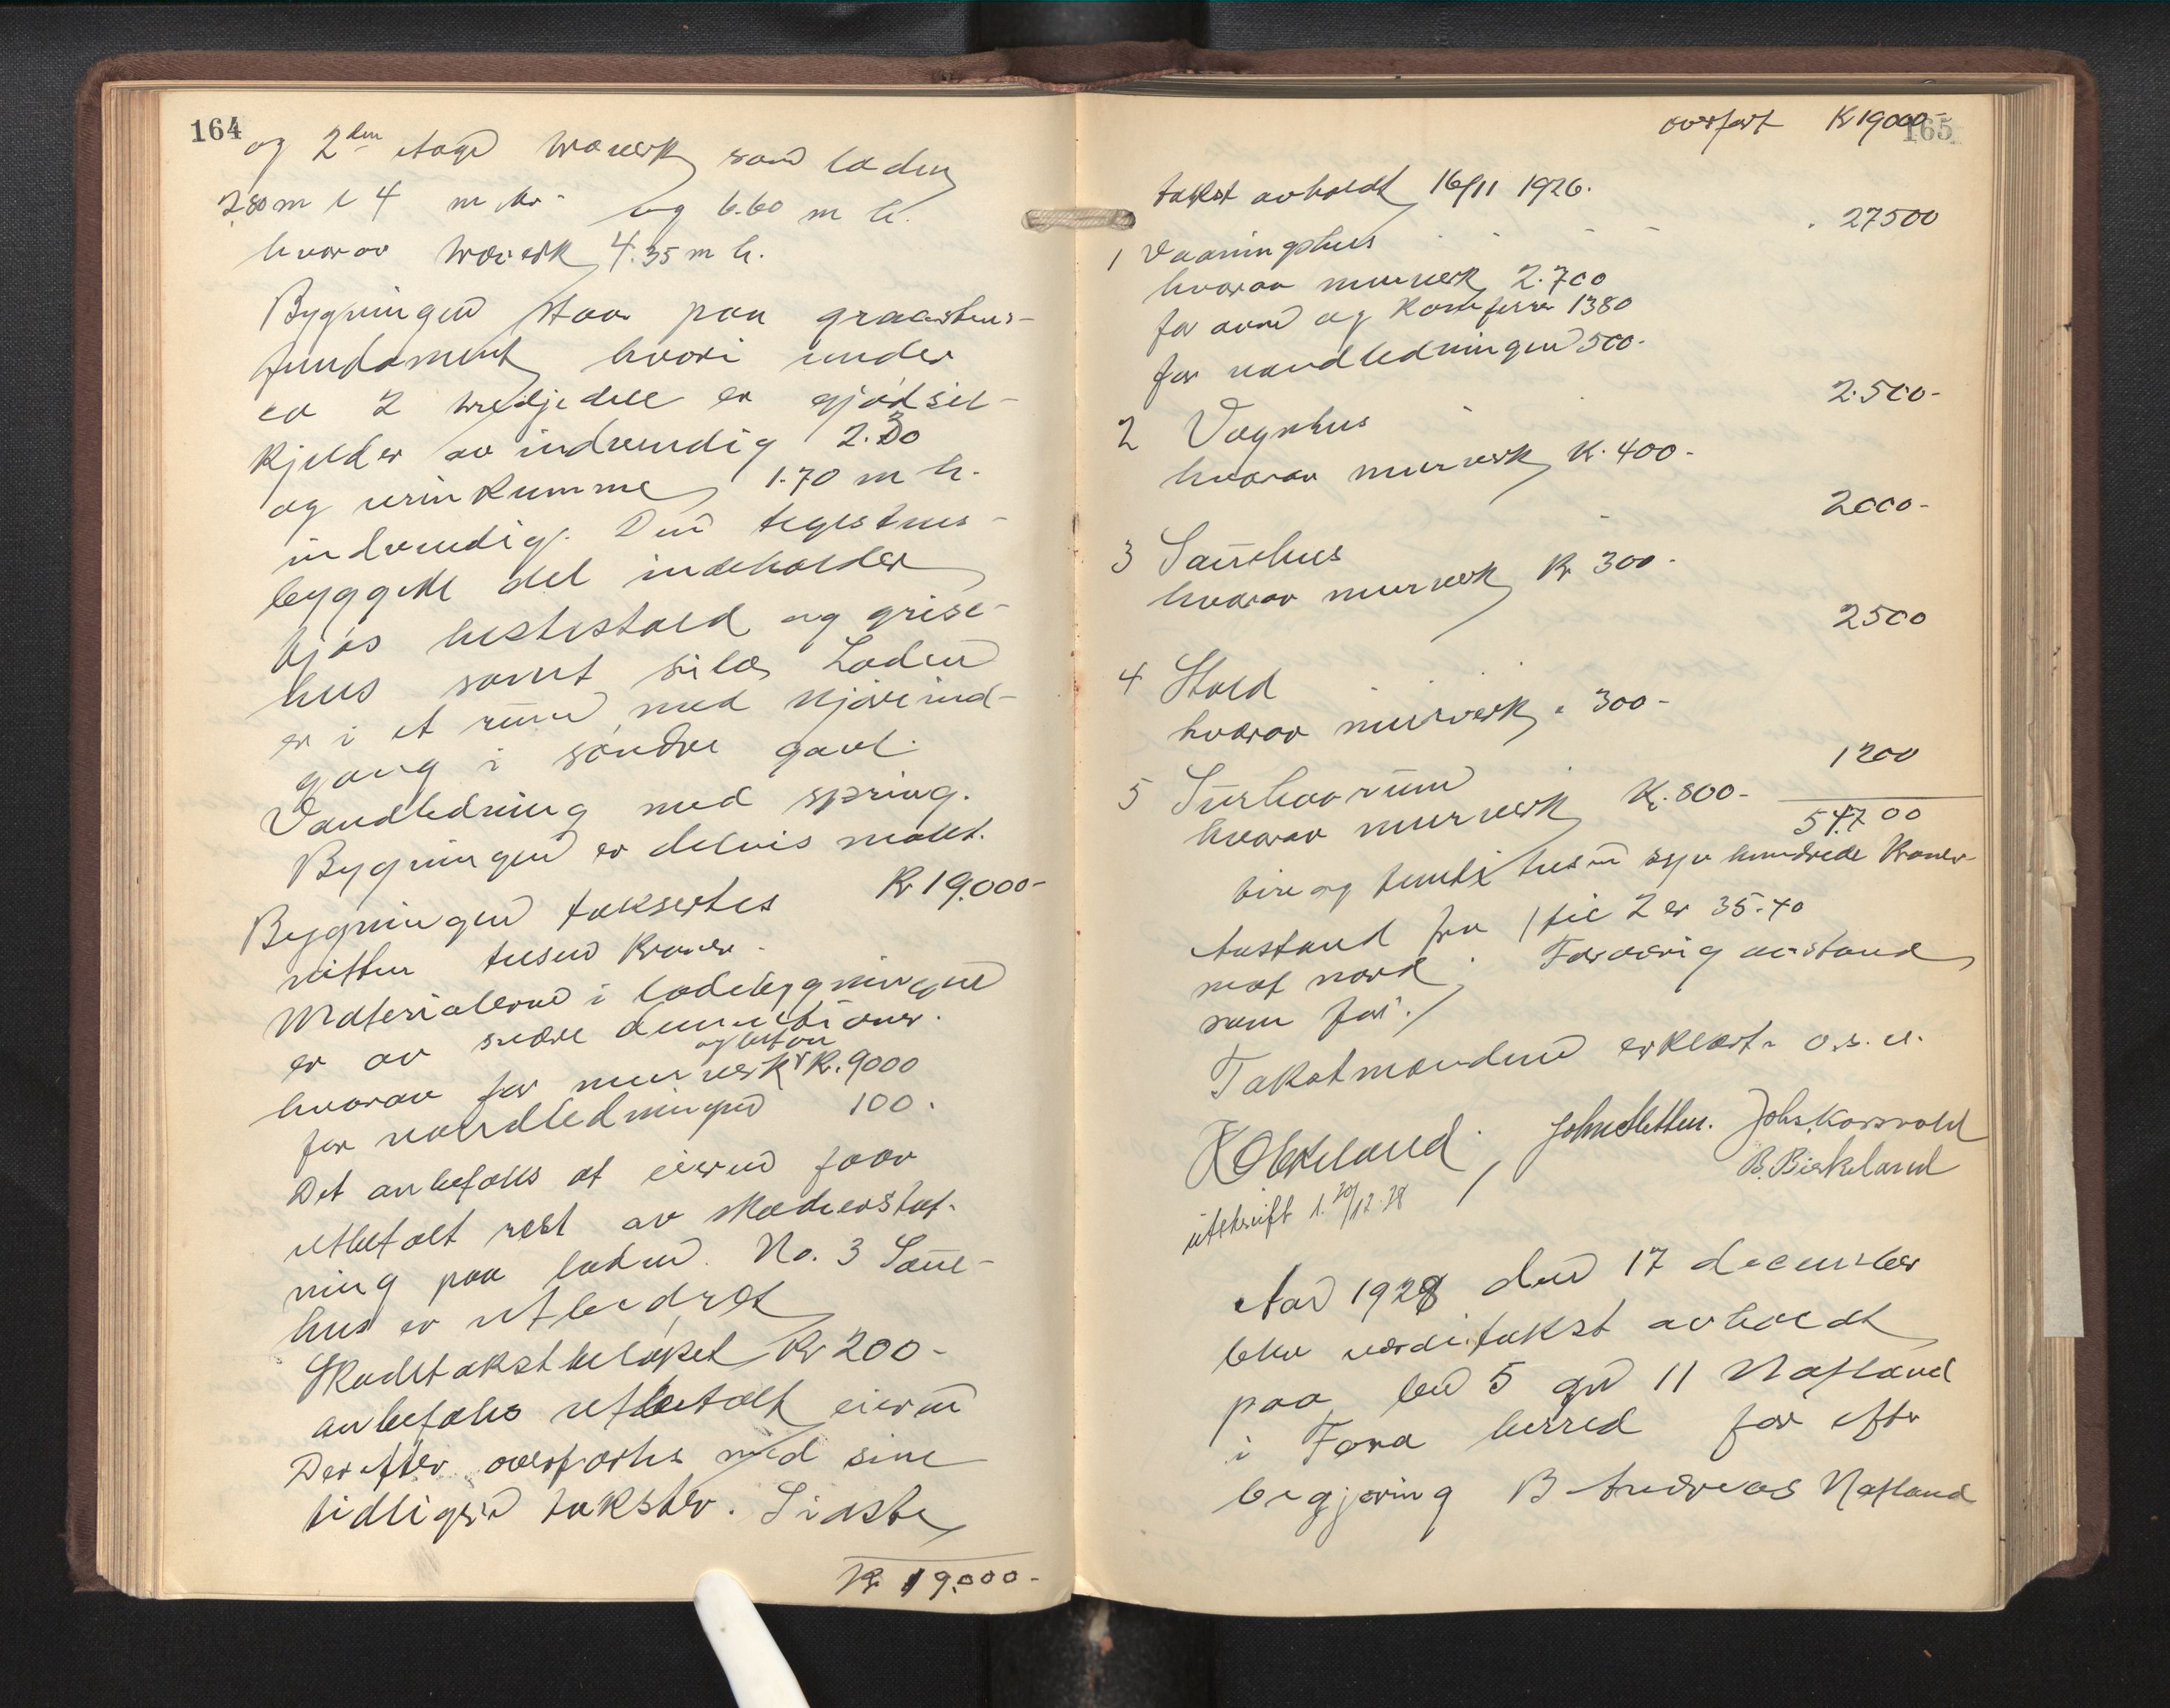 164
og 2den etage træverk som laden
2.80 m l 4 m br. og 6.60 m h.
hvorav træverk 4.35 m h.
Bygningen staar paa graastens-
fundament hvori under
ca 2 tredjedele er gjødsel-
kjelder av indvendig 2.30
og urinkumme 1.70 m h.
indvendig. Den teglstens-
byggede del indeholder
fjøs hestestald og grise-
hus samt silo. Laden
er i et rum med kjøreind-
gang i søndre gavl.
Vandledning med spring.
Bygningen er delvis malt.
Bygningen taksertes Kr 19.000-
nitten tusen Kroner.
Materialerne i ladebygningen
er av svære dimensioner.
og beton
hvorav for murverk Kr. 9000
for vandledningen 100.
Det anbefales at eieren faar
utbetalt rest av skadeerstat-
ning paa laden. No. 3 Saue-
hus er utbedret
Skadetakstbeløpet Kr 200-
anbefales utbetalt eieren
Derefter overførtes med sine
tidligere takster. Sidste
Kr 19.000-
overført Kr 19000-
165
takst avholdt 16/11 1926.
1 Vaaningshus 27500
hvorav murverk 2.700
for ovne og komfyrer 1380
for vandledningen 500-
2 Vognhus 2.500-
hvorav murverk K. 400-
3 Sauehus 2000-
hvorav murverk Kr 300-
4 Stald 2500
hvorav murverk " 300-
5 Surhaarum 1200
hvorav murverk K. 800-
54700
fire og femti tusen syv hundrede Kroner
Avstand fra 1 til 2 er 35.40
mot nord. Forøvrig avstand
som før./
Takstmændene erklært o.s.v.
K Obkeland. John Sletten. Johs. Korsvold
B. Birkeland
utskrift 1. 20/12.28
Aar 1928 den 17 december
blev værditakst avholdt
paa br 5 gn 11 Natland
i Fana herred for efter
begjæring B Andreas Natland